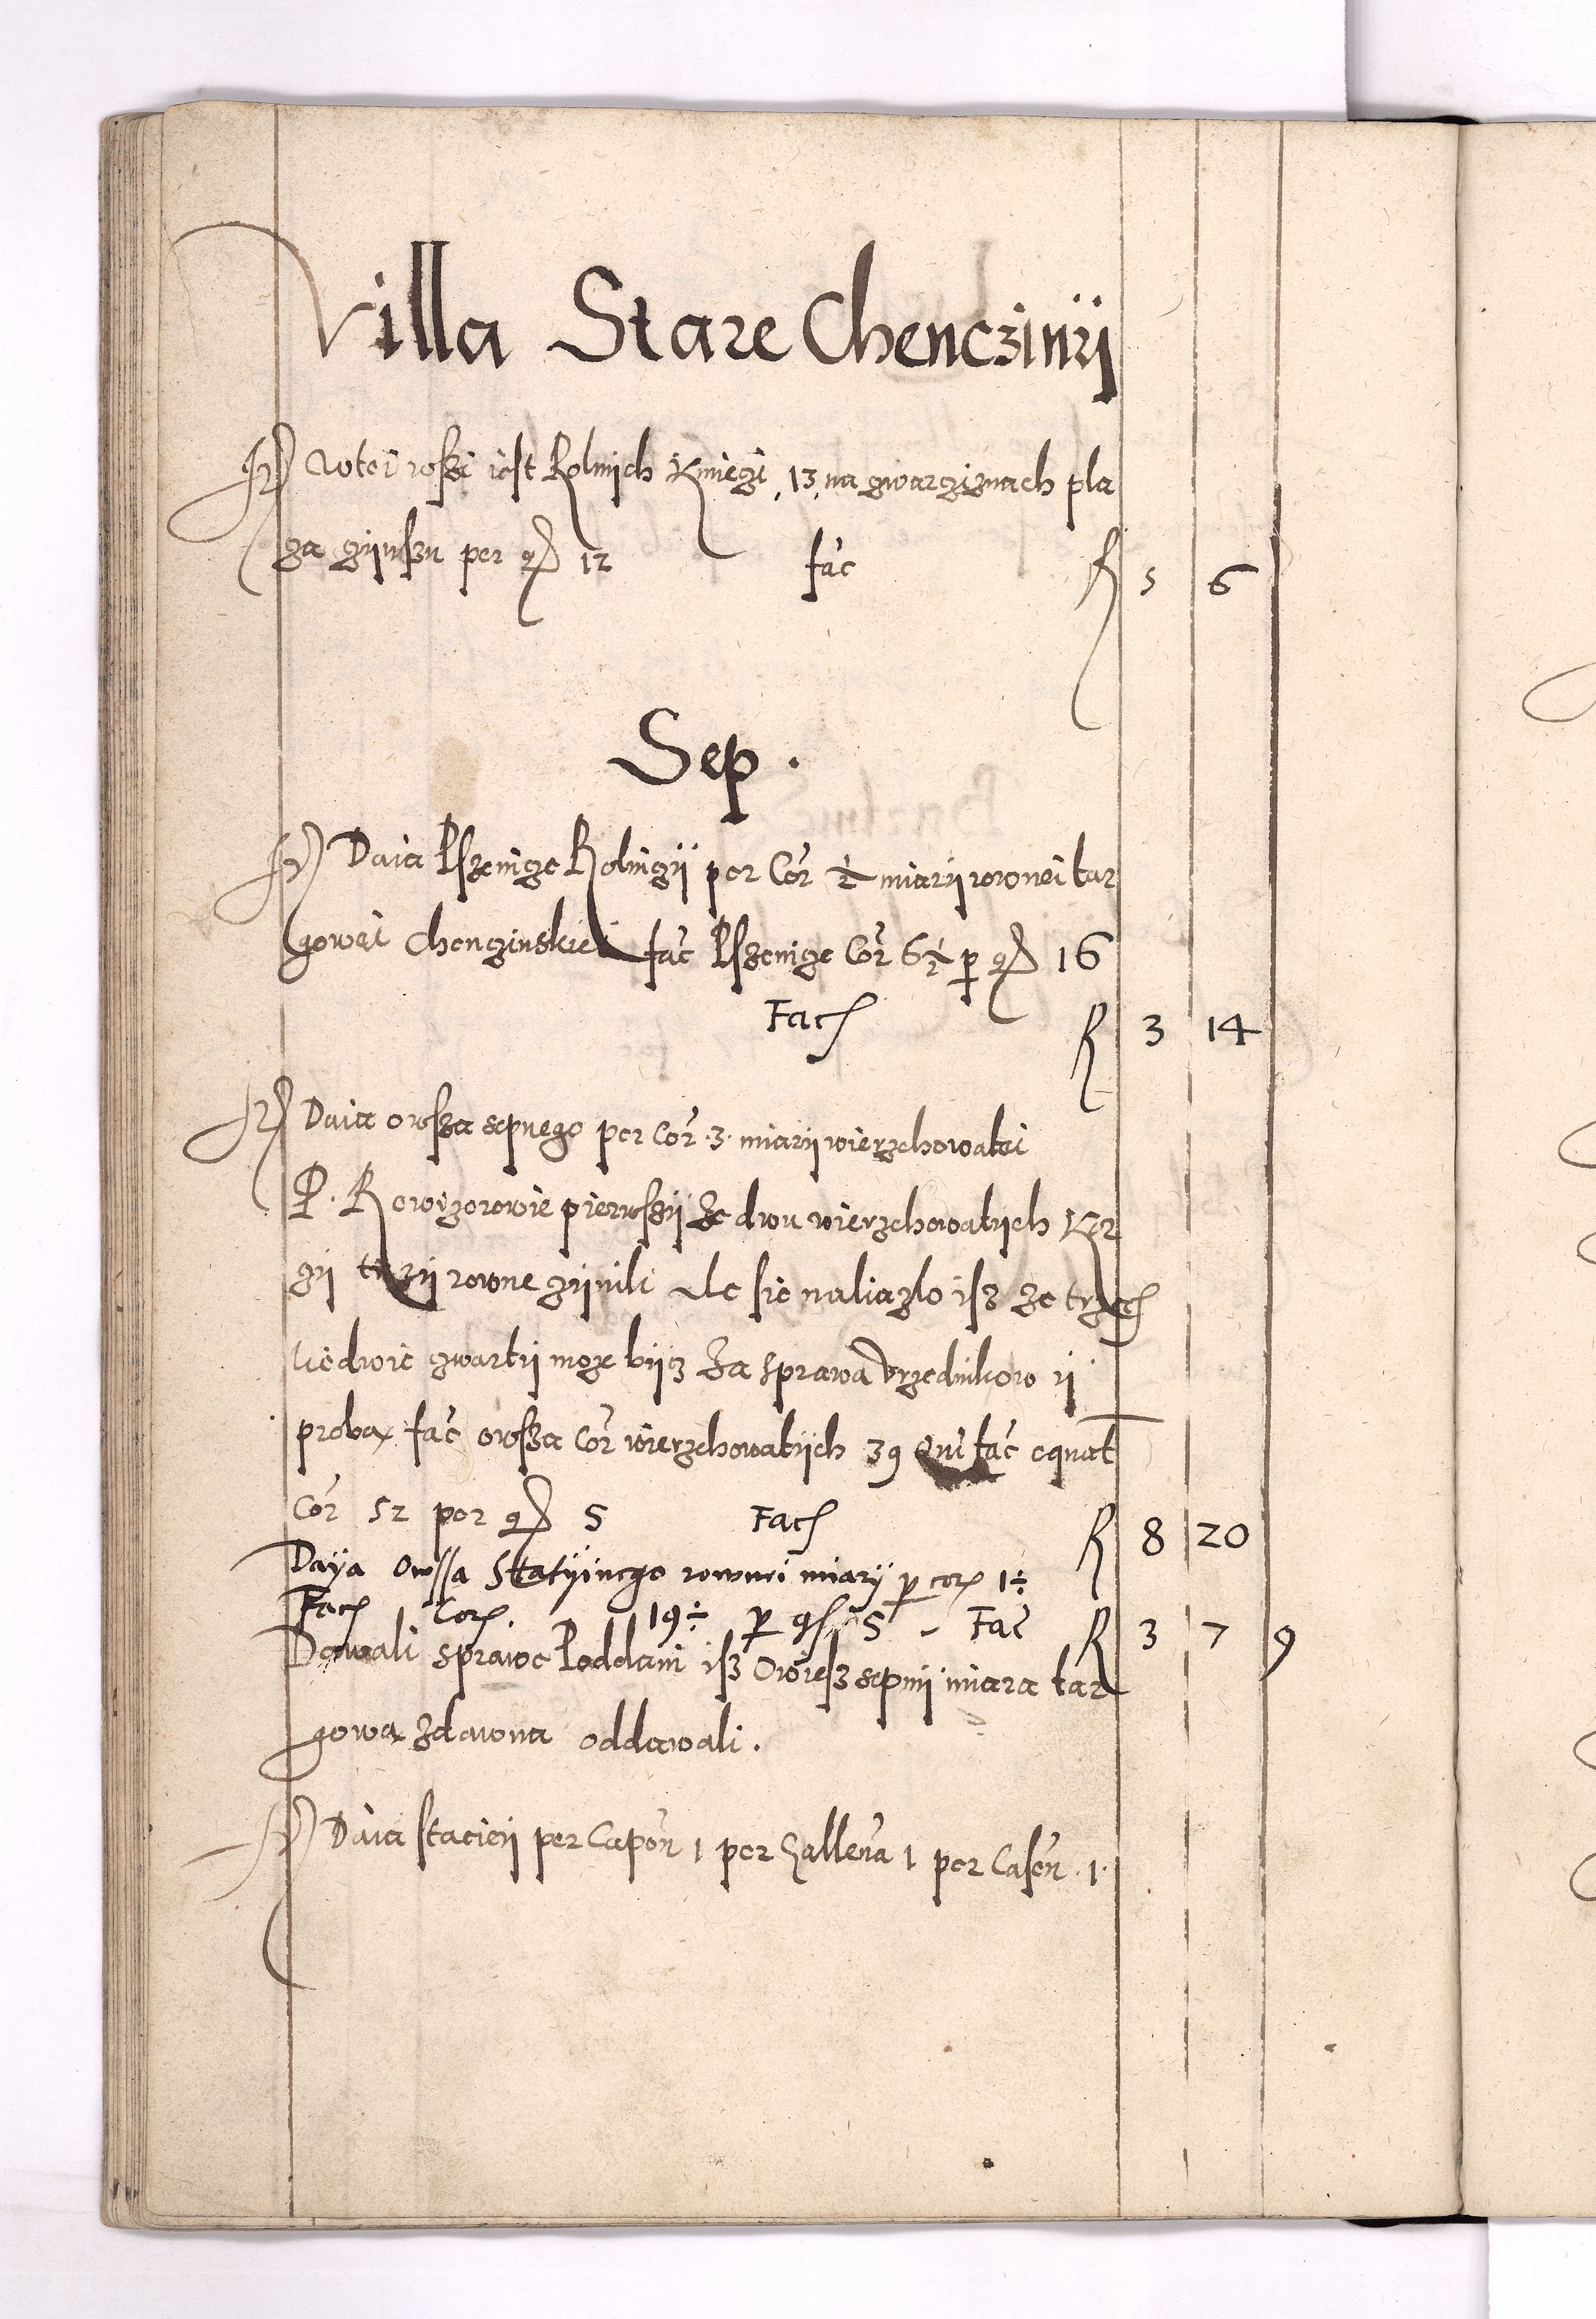 Villa Stare Chenczinÿ
W tei wsži iest Rolnich Kmieczi, 13, na czwarcziznach pla
cza czÿnszu per gr 12 fac̃ R 5 6
Sep.
Daia Pszenicze Rolniczÿ per Cor̃ ½ miarÿ rownei tar
gowei Chenczinskiei fac̃ Pszenicze Cor̃ 6½ p gr 16
Fac̃ R 3 14
Daia owsza sepnego per Cor̃ .3. miarÿ wierzchowatei
P. Rewizorowie pierwszÿ ze dwu wierzchowatÿch Kor
czÿ trzÿ rowne czÿnili Ale sie naliazlo isz ze trzech
liedwie czwartÿ moze bÿcz Za sprawa Vrzednikow ÿ
proba fac̃ owsza Cor̃ wierzchowatÿch 39 Qui fac̃ equat
Cor̃ 52 per gr 5 Fac̃ R 8 20
Daÿa Owssa Statÿinego rownei miarÿ p cor̃ 1÷
Fac̃ Cor̃ 19÷ p gr 5 - Fac̃ R 3 7 9
Dawali sprawe Poddani isz Owiesz sepnÿ miara tar
gowa zdawna oddawali.
Daia stacieÿ per Capon̄ 1 per Gallen̄a 1 per Casen̄ .1.